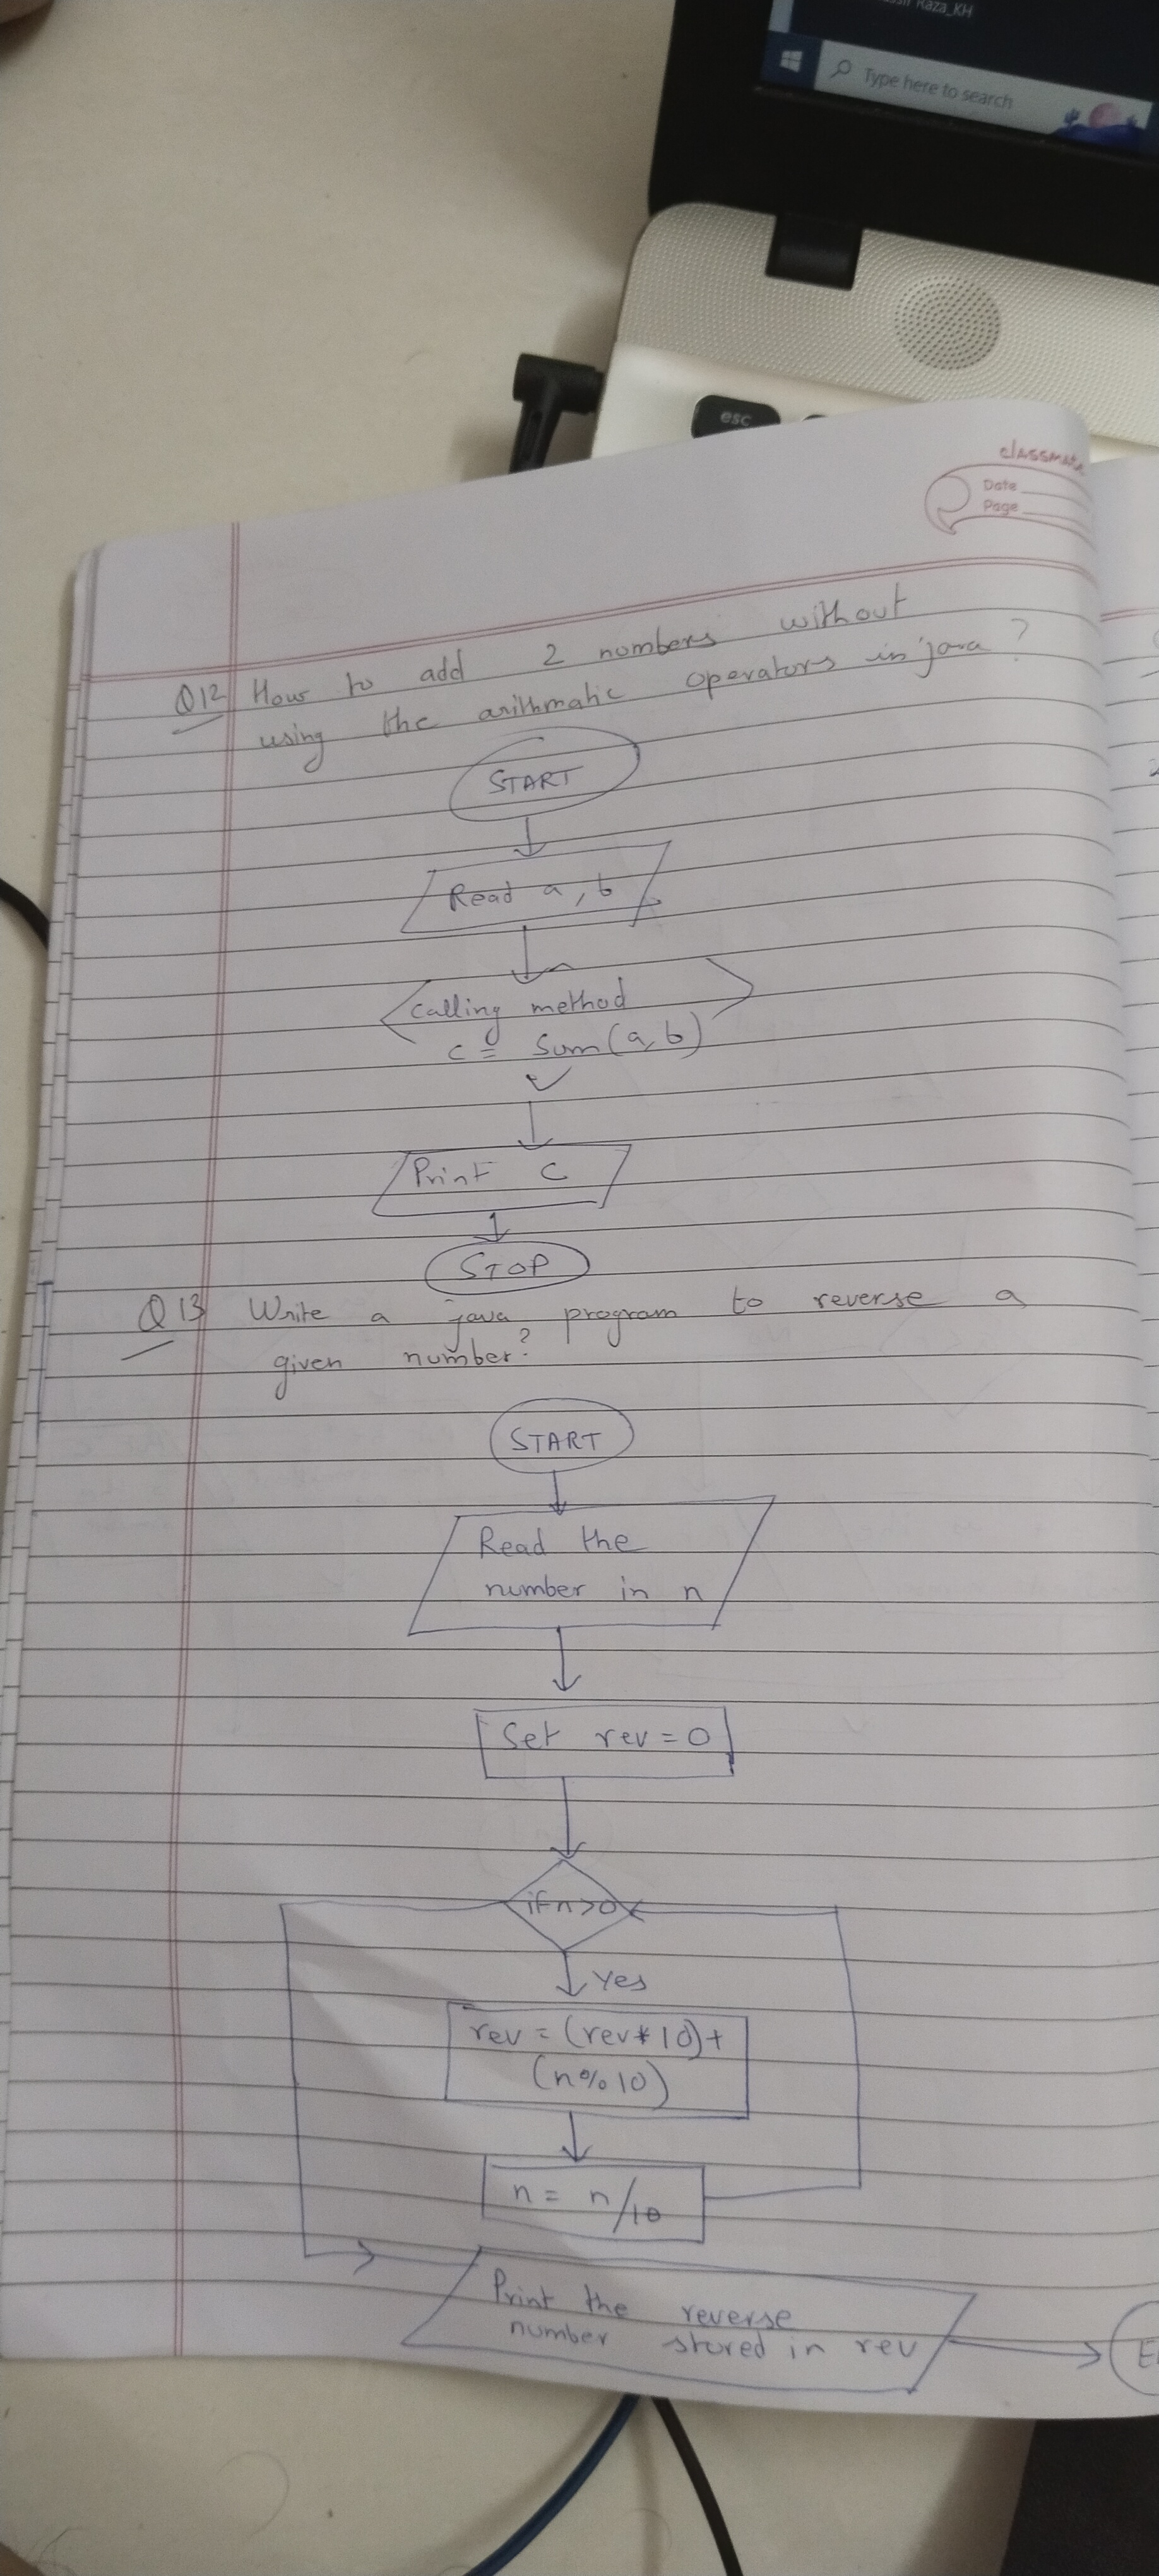 Raza_KH
Type here to search
esc
classmate
Date
Page
Q12 How to add 2 numbers without
using the arithmatic operators in java?
START
Read a, b
calling method
c = Sum(a, b)
Print c
STOP
Q13 Write a java program to reverse a
given number?
START
Read the
number in n
Set rev = 0
if n > 0
Yes
rev = (rev * 10) +
(n % 10)
n = n/10
Print the reverse
number stored in rev